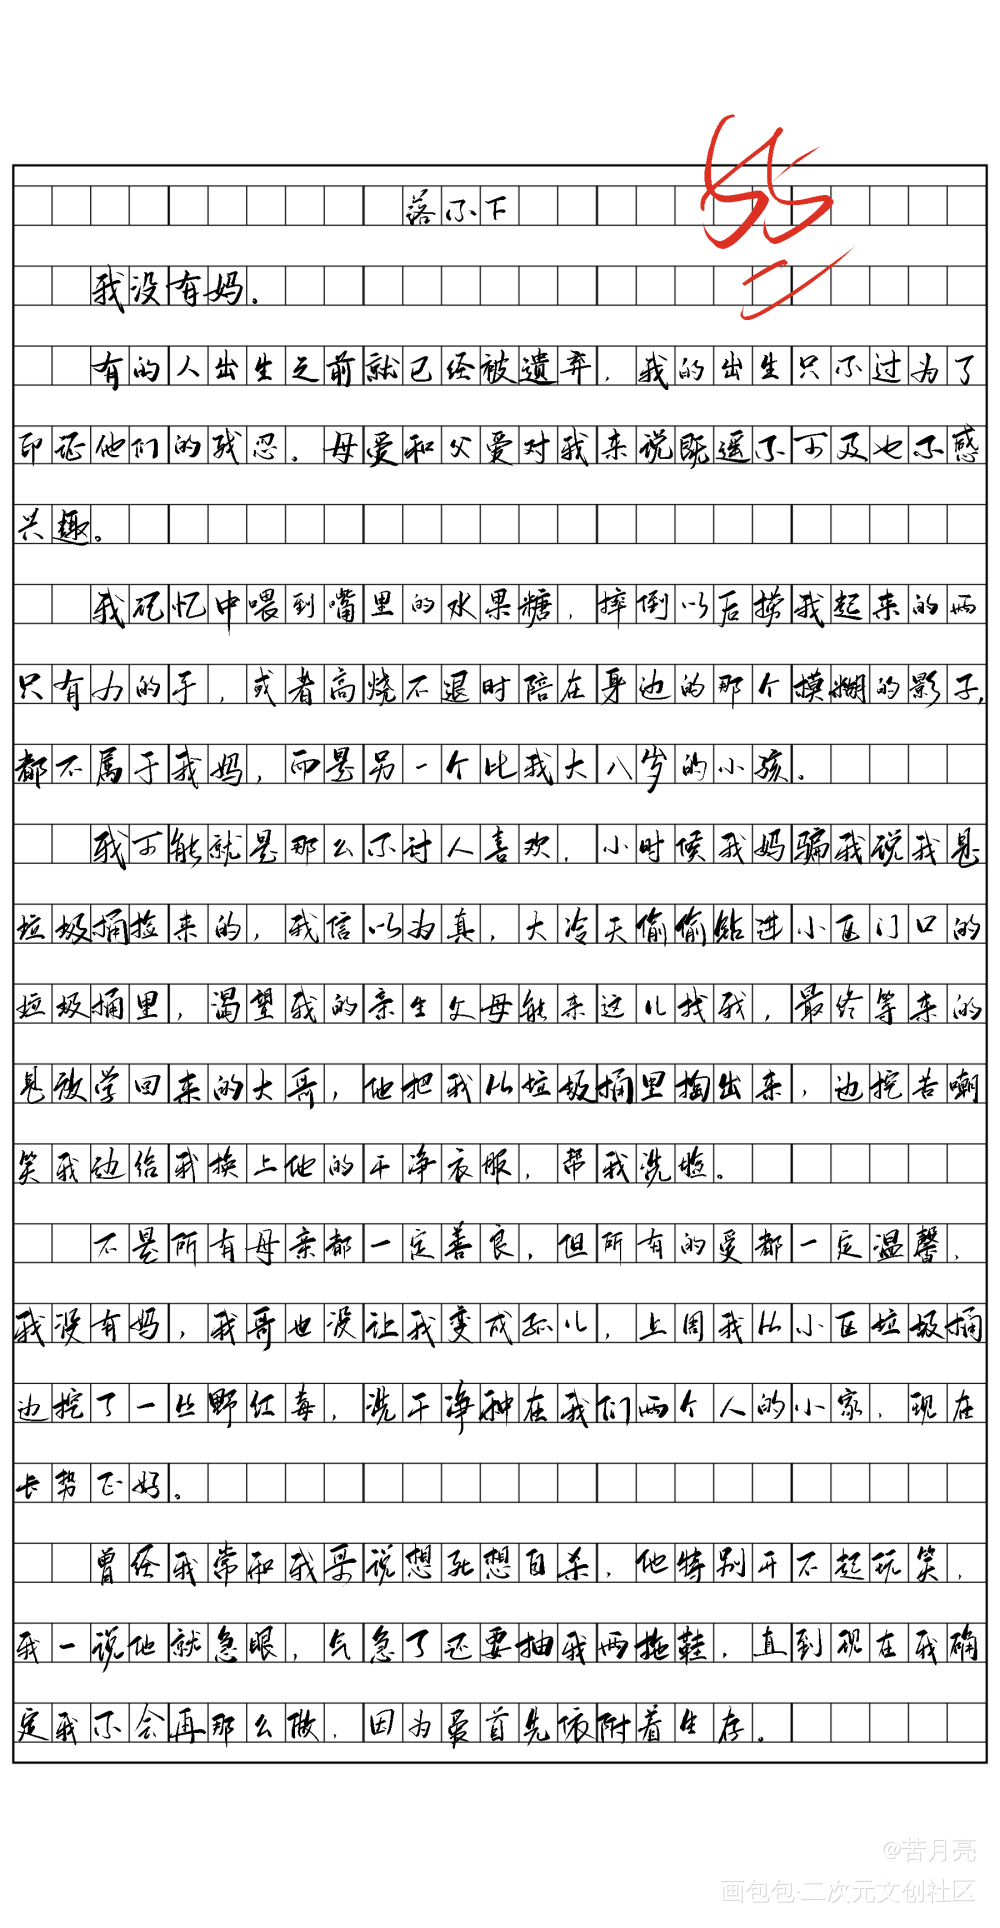 落不下
55
我没有妈。
有的人出生之前就已经被遗弃，我的出生只不过为了
印证他们的残忍。母爱和父爱对我来说既遥不可及也不感
兴趣。
我记忆中喂到嘴里的水果糖，摔倒以后捞我起来的两
只有力的手，或者高烧不退时陪在身边的那个模糊的影子，
都不属于我妈，而是另一个比我大八岁的小孩。
我可能就是那么不讨人喜欢，小时候我妈骗我说我是
垃圾桶捡来的，我信以为真，大冷天偷偷钻进小区门口的
垃圾桶里，渴望我的亲生父母能来这儿找我，最终等来的
是放学回来的大哥，他把我从垃圾桶里掏出来，边挖苦嘲
笑我边给我换上他的干净衣服，帮我洗脸。
不是所有母亲都一定善良，但所有的爱都一定温馨，
我没有妈，我哥也没让我变成孤儿，上周我从小区垃圾桶
边挖了一丛野红莓，洗干净种在我们两个人的小家，现在
长势正好。
曾经我常和我哥说想死想自杀，他特别开不起玩笑，
我一说他就急眼，气急了还要抽我两拖鞋，直到现在我确
定我不会再那么做，因为爱首先依附着生存。
@苦月亮
画包包·二次元文创社区